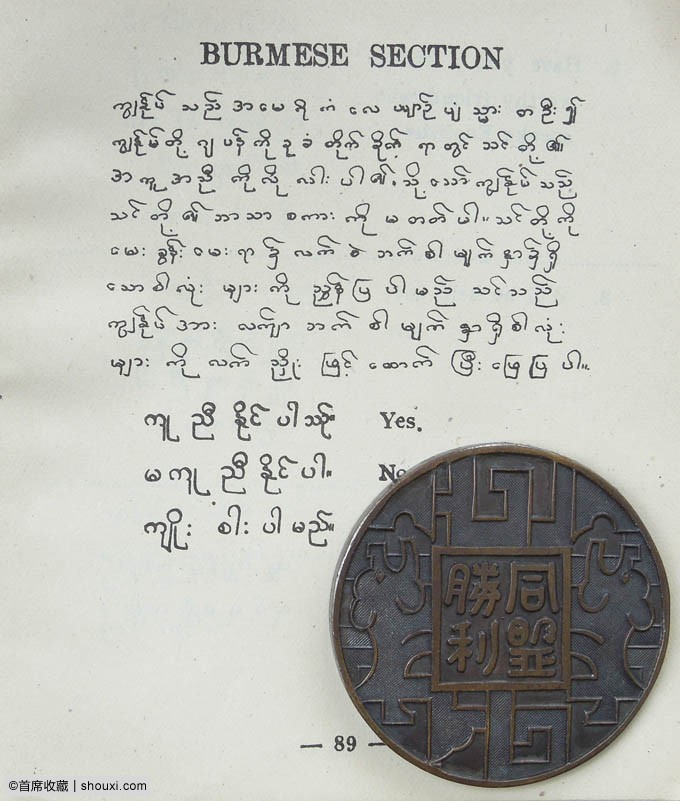 BURMESE SECTION
ကျွန်ုပ် သည် အမေရိကံ လေယျာဉ်ပျံ သ္မား တဦး၍
ကျွန်ုပ်တို့ ဂျပန်ကို ခုခံ တိုက်ခိုက် ရာတွင် သင်တို့၏
အကူအညီ ကိုလိုလါးပါ၏၊ သို့သော်ကျွန်ုပ်သည်
သင်တို့၏ ဘာသာ စကား ကို မတတ်ပါ။ သင်တို့ကို
မေးခွန်းမေးရာ၌ လက်စွဲဘက် စါမျက်နှာ၌ရှိ
သောစါလုံးများကို ညွှန်ပြပါမည် သင်သည်
ကျွန်ုပ်အား လက်ျာဘက် စါမျက်နှာရှိစါလုံး
များကို လက်ညှိုးဖြင့် ထောက်ပြီးဖြေပြပါ။
ကူညီနိုင်ပါသည်။ Yes.
မကူညီနိုင်ပါ။
ကျိုးစါးပါမည်။
同盟
勝利
— 89 —
©首席收藏 | shouxi.com